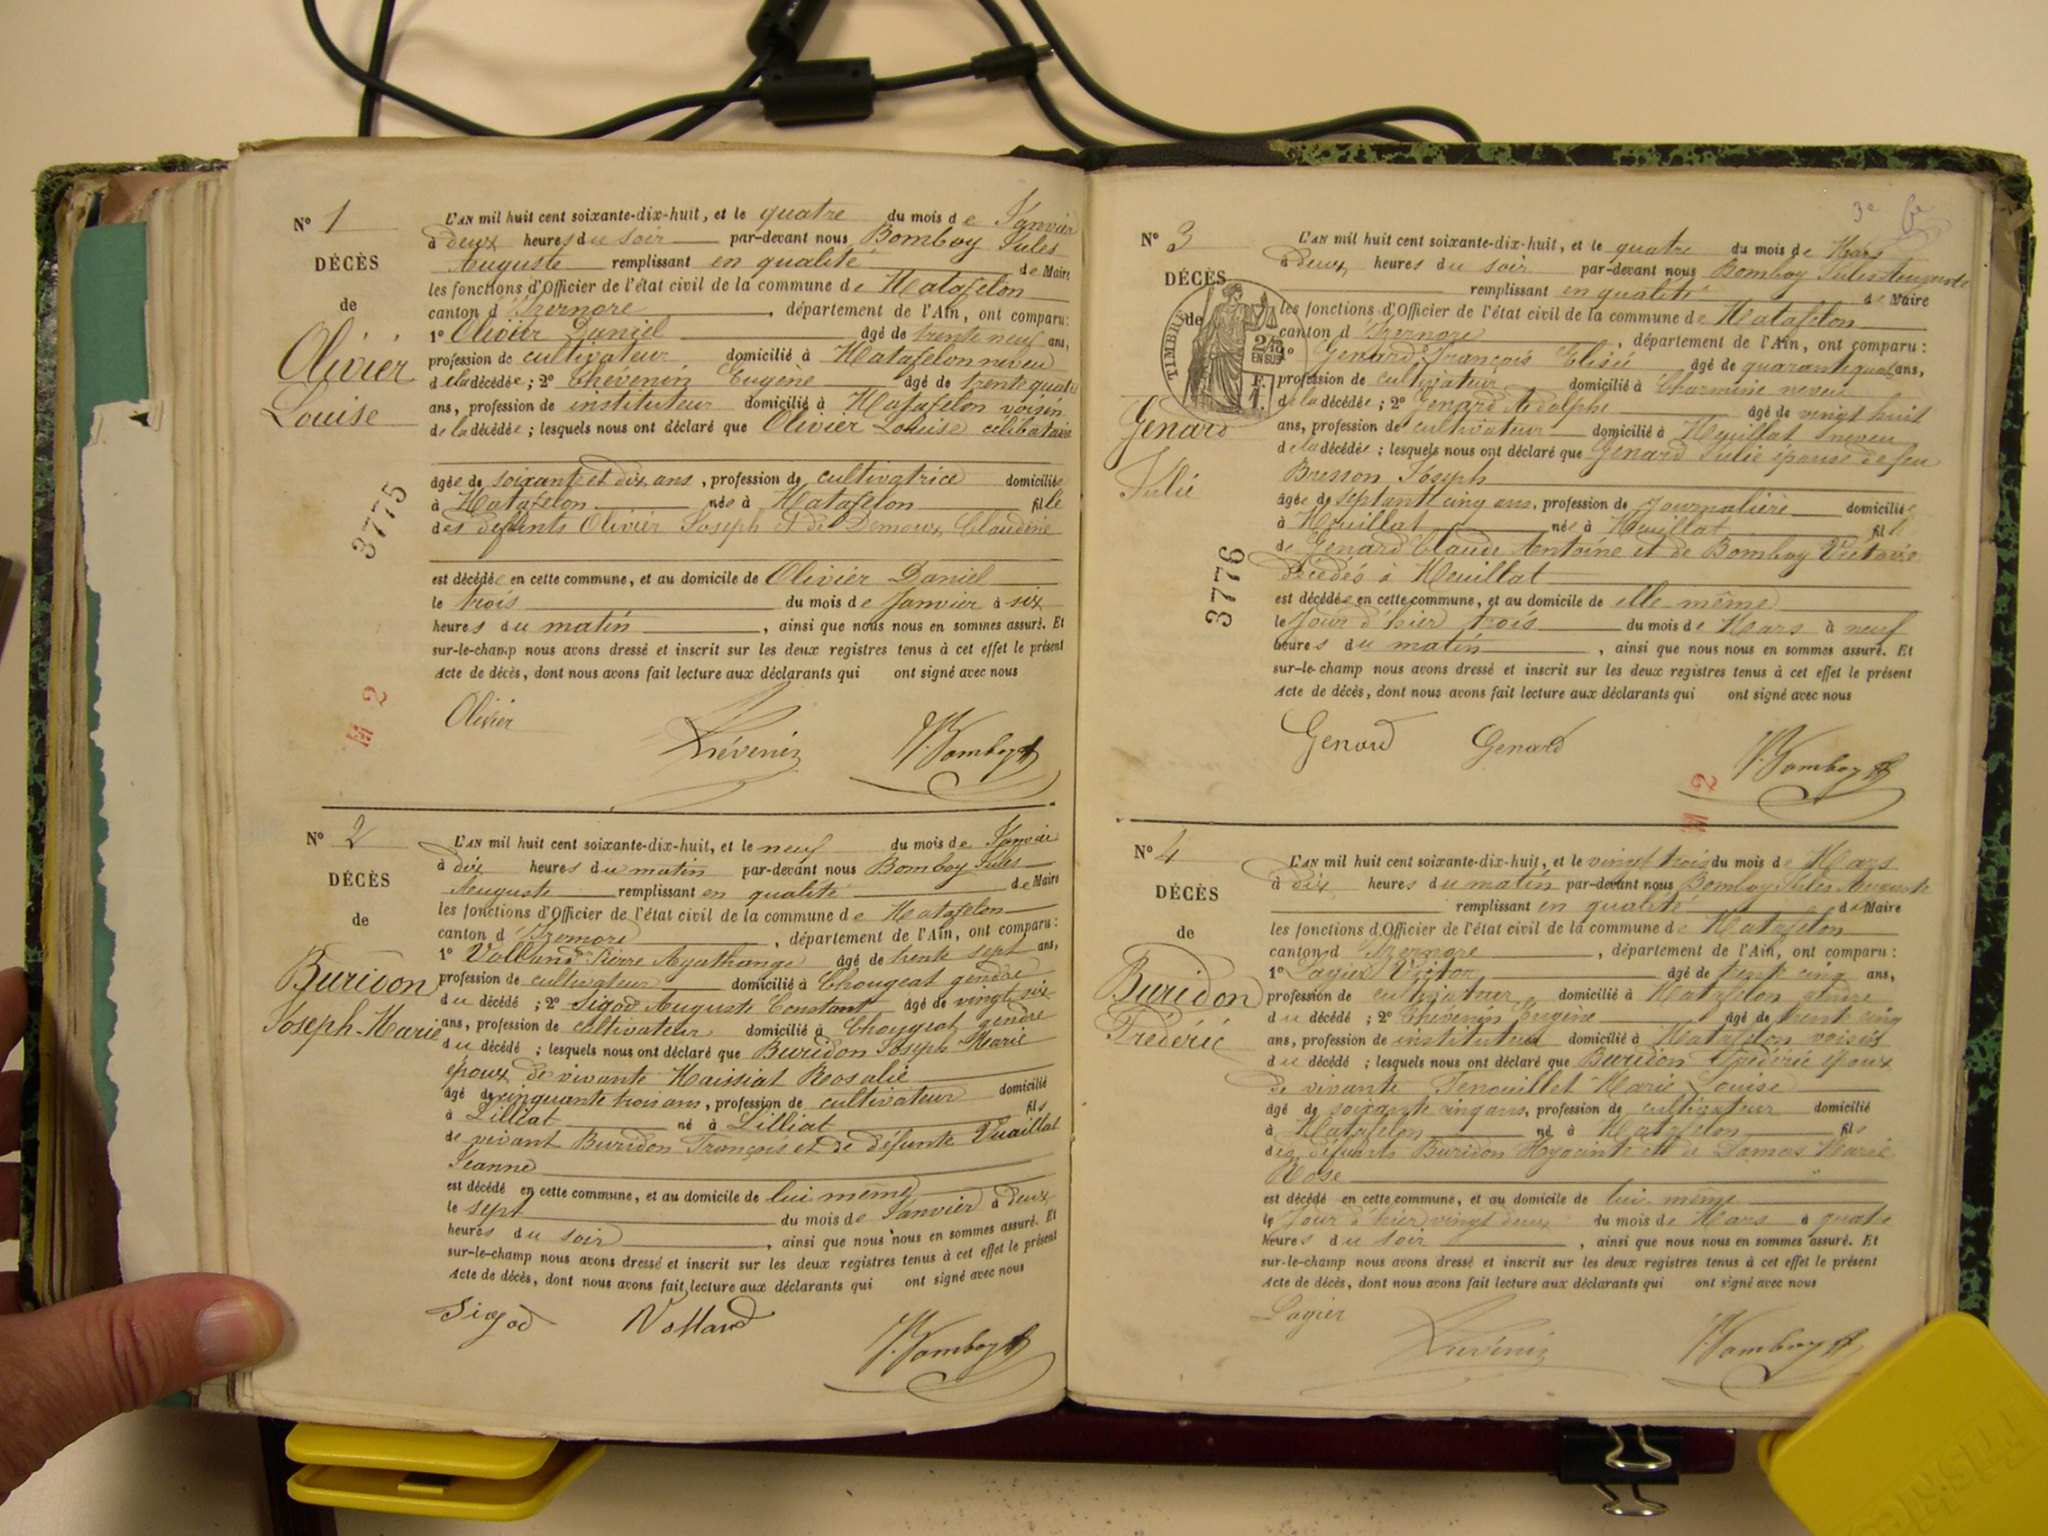 N° 1
DÉCÈS
de
Olivier
Louise
3775
M 2
L'AN mil huit cent soixante-dix-huit, et le quatre du mois de Janvier
à deux heures du soir par-devant nous Bomboy Jules
Auguste remplissant en qualité de Maire
les fonctions d'Officier de l'état civil de la commune de Matafelon
canton d'Izernore, département de l'Ain, ont comparu:
1° Olivier Daniel âgé de trente neuf ans,
profession de cultivateur domicilié à Matafelon neveu
de la décédée; 2° Thévenin Eugène âgé de trente quatre
ans, profession de instituteur domicilié à Matafelon voisin
de la décédée; lesquels nous ont déclaré que Olivier Louise célibataire
âgée de soixante et dix ans, profession de cultivatrice domiciliée
à Matafelon née à Matafelon fille
des défunts Olivier Joseph et de Demoux Claudine
est décédée en cette commune, et au domicile de Olivier Daniel
le trois du mois de Janvier à six
heures du matin, ainsi que nous nous en sommes assuré. Et
sur-le-champ nous avons dressé et inscrit sur les deux registres tenus à cet effet le présent
Acte de décès, dont nous avons fait lecture aux déclarants qui ont signé avec nous
Olivier Thévenin J. Bomboy
N° 2
DÉCÈS
de
Buridon
Joseph-Marie
L'AN mil huit cent soixante-dix-huit, et le neuf du mois de Janvier
à dix heures du matin par-devant nous Bomboy Jules
Auguste remplissant en qualité de Maire
les fonctions d'Officier de l'état civil de la commune de Matafelon
canton d'Izernore, département de l'Ain, ont comparu:
1° Volland Pierre Agathange âgé de trente sept ans,
profession de cultivateur domicilié à Chougeat gendre
du décédé; 2° Sigod Auguste Constant âgé de vingt six
ans, profession de cultivateur domicilié à Chougeat gendre
du décédé; lesquels nous ont déclaré que Buridon Joseph Marie
époux de vivante Maissiat Rosalie
âgé de cinquante trois ans, profession de cultivateur domicilié
à Lilliat né à Lilliat fils
de vivant Buridon François et de défunte Vuaillat
Jeanne
est décédé en cette commune, et au domicile de lui même
le sept du mois de Janvier à deux
heures du soir, ainsi que nous nous en sommes assuré. Et
sur-le-champ nous avons dressé et inscrit sur les deux registres tenus à cet effet le présent
Acte de décès, dont nous avons fait lecture aux déclarants qui ont signé avec nous
Sigod Volland J. Bomboy
3e
N° 3
DÉCÈS
de
TIMBRE
2/10
EN SUS
F.
1.
Genard
Julie
3776
M 2
L'AN mil huit cent soixante-dix-huit, et le quatre du mois de Mars
à deux heures du soir par-devant nous Bomboy Jules Auguste
remplissant en qualité de Maire
les fonctions d'Officier de l'état civil de la commune de Matafelon
canton d'Izernore, département de l'Ain, ont comparu:
1° Genard François Elisée âgé de quarante quatre ans,
profession de cultivateur domicilié à Charmine neveu
de la décédée; 2° Genard Adolphe âgé de vingt huit
ans, profession de cultivateur domicilié à Heuillat neveu
de la décédée; lesquels nous ont déclaré que Genard Julie épouse de feu
Bresson Joseph
âgée de septante cinq ans, profession de Journalière domiciliée
à Heuillat née à Heuillat fille
de Genard Claude Antoine et de Bomboy Victoire
décédés à Heuillat
est décédée en cette commune, et au domicile de elle même
le Jour d'hier trois du mois de Mars à neuf
heures du matin, ainsi que nous nous en sommes assuré. Et
sur-le-champ nous avons dressé et inscrit sur les deux registres tenus à cet effet le présent
Acte de décès, dont nous avons fait lecture aux déclarants qui ont signé avec nous
Genard Genard J. Bomboy
N° 4
DÉCÈS
de
Buridon
Frédéric
L'AN mil huit cent soixante-dix-huit, et le vingt trois du mois de Mars
à dix heures du matin par-devant nous Bomboy Jules Auguste
remplissant en qualité de Maire
les fonctions d'Officier de l'état civil de la commune de Matafelon
canton d'Izernore, département de l'Ain, ont comparu:
1° Lagier Victor âgé de trente cinq ans,
profession de cultivateur domicilié à Matafelon gendre
du décédé; 2° Thévenin Eugène âgé de trente cinq
ans, profession de instituteur domicilié à Matafelon voisin
du décédé; lesquels nous ont déclaré que Buridon Frédéric époux
de vivante Fenouillet Marie Louise
âgé de soixante cinq ans, profession de cultivateur domicilié
à Matafelon né à Matafelon fils
des défunts Buridon Hyacinte et de Damas Marie
Rose
est décédé en cette commune, et au domicile de lui même
le Jour d'hier vingt deux du mois de Mars à quatre
heures du soir, ainsi que nous nous en sommes assuré. Et
sur-le-champ nous avons dressé et inscrit sur les deux registres tenus à cet effet le présent
Acte de décès, dont nous avons fait lecture aux déclarants qui ont signé avec nous
Lagier Thévenin J. Bomboy